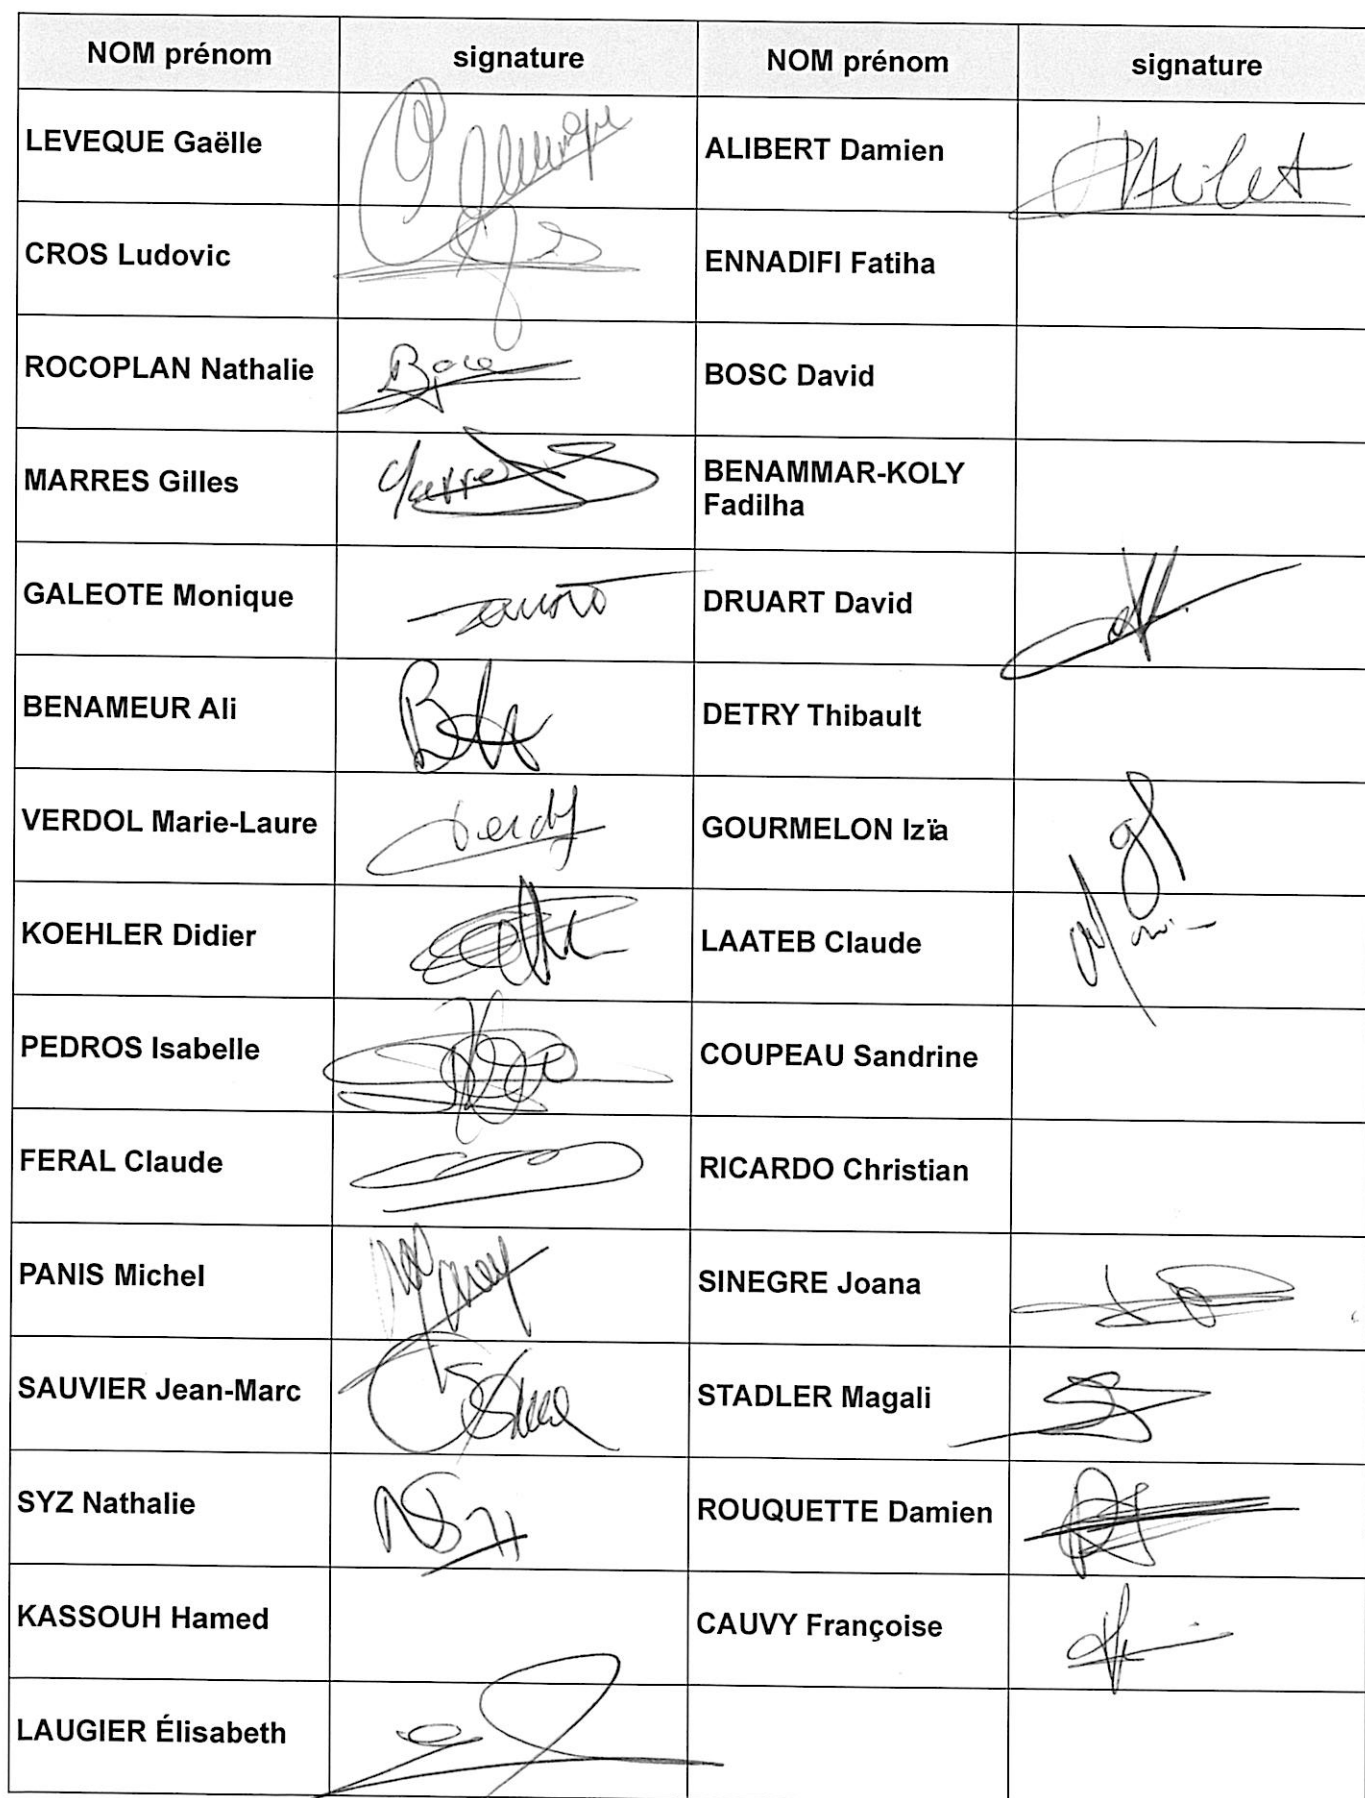 NOM prénom signature NOM prénom signature
LEVEQUE Gaëlle ALIBERT Damien
CROS Ludovic ENNADIFI Fatiha
ROCOPLAN Nathalie BOSC David
MARRES Gilles BENAMMAR-KOLY
Fadilha
GALEOTE Monique DRUART David
BENAMEUR Ali DETRY Thibault
VERDOL Marie-Laure GOURMELON Izïa
KOEHLER Didier LAATEB Claude
PEDROS Isabelle COUPEAU Sandrine
FERAL Claude RICARDO Christian
PANIS Michel SINEGRE Joana
SAUVIER Jean-Marc STADLER Magali
SYZ Nathalie ROUQUETTE Damien
KASSOUH Hamed CAUVY Françoise
LAUGIER Élisabeth